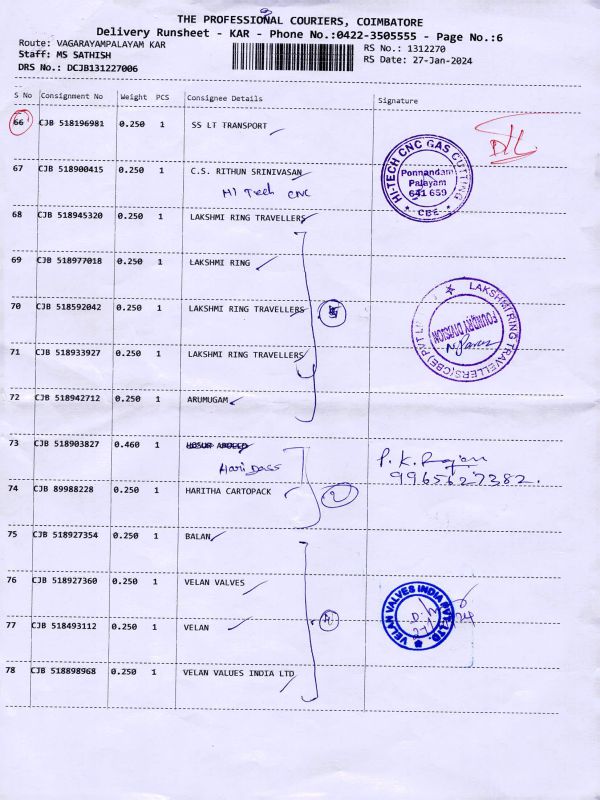 THE PROFESSIONAL COURIERS, COIMBATORE
Delivery Runsheet - KAR - Phone No.:0422-3505555 - Page No.:6
Route: VAGARAYAMPALAYAM KAR
RS No.: 1312270
Staff: MS SATHISH
RS Date: 27-Jan-2024
DRS No.: DCJB131227006
S No Consignment No Weight PCS Consignee Details Signature
66 CJB 518196981 0.250 1 SS LT TRANSPORT
67 CJB 518900415 0.250 1 C.S. RITHUN SRINIVASAN
Hi Tech CNC
HI-TECH CNC GAS CUTTING
Ponnandam
Palayam
641 659
* CBE *
68 CJB 518945320 0.250 1 LAKSHMI RING TRAVELLERS
69 CJB 518977018 0.250 1 LAKSHMI RING
70 CJB 518592042 0.250 1 LAKSHMI RING TRAVELLERS
LAKSHMI RING TRAVELLERS (CBE) PVT
FOUNDRY DIVISION
71 CJB 518933927 0.250 1 LAKSHMI RING TRAVELLERS
72 CJB 518942712 0.250 1 ARUMUGAM
73 CJB 518903827 0.460 1
Hari Dass
P. K. Rajan
9965627382.
74 CJB 89988228 0.250 1 HARITHA CARTOPACK
2
75 CJB 518927354 0.250 1 BALAN
76 CJB 518927360 0.250 1 VELAN VALVES
VELAN VALVES INDIA PVT. LTD.
77 CJB 518493112 0.250 1 VELAN
78 CJB 518898968 0.250 1 VELAN VALUES INDIA LTD